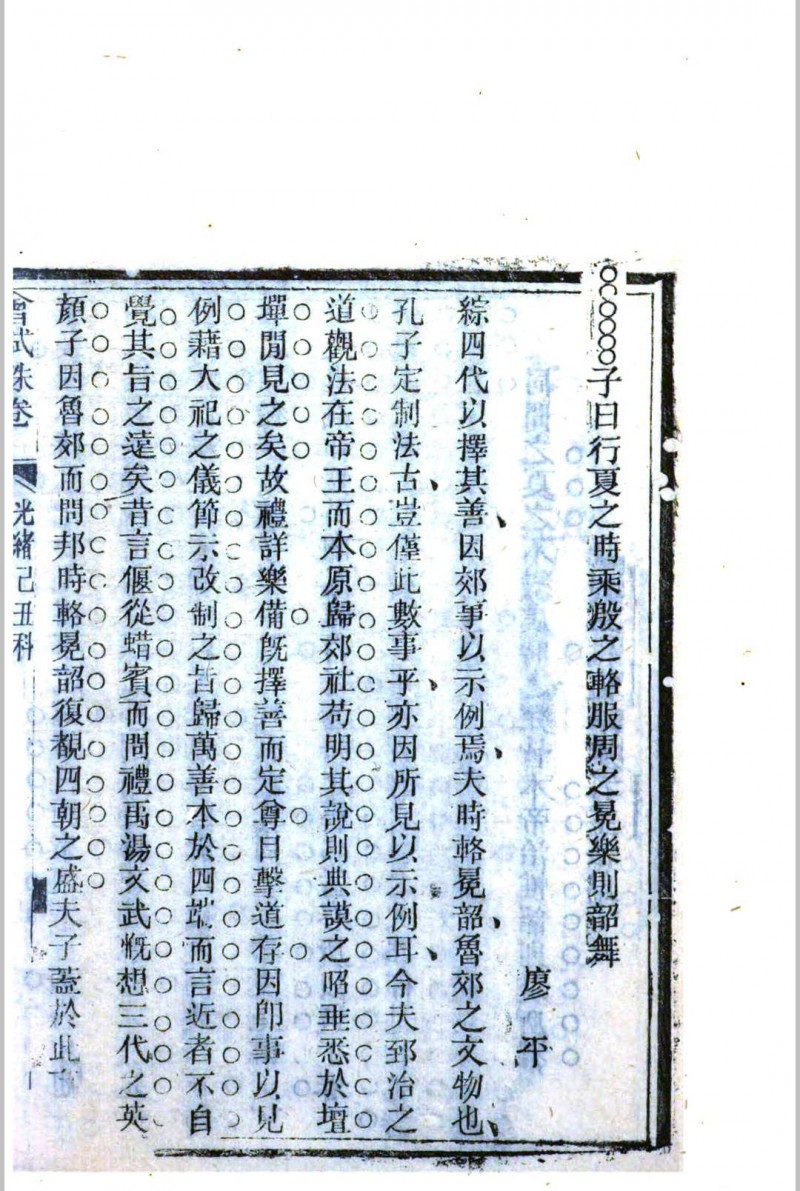 子曰行夏之時乘殷之輅服周之冕樂則韶舞
廖平
綜四代以擇其善因郊事以示例焉夫時輅冕韶魯郊之文物也
孔子定制法古豈僅此數事乎亦因所見以示例耳今夫郅治之
道觀法在帝王而本原歸郊社苟明其說則典謨之昭垂悉於壇
墠閒見之矣故禮詳樂備旣擇善而定尊目擊道存因卽事以見
例藉大祀之儀節示改制之旨歸萬善本於四端而言近者不自
覺其旨之遠矣昔言偃從蜡賓而問禮禹湯文武慨想三代之英
顏子因魯郊而問邦時輅冕韶復覩四朝之盛夫子蓋於此
會試硃卷 光緒己丑科